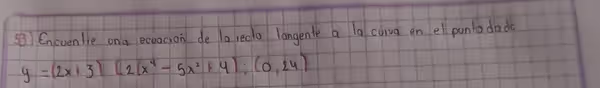 53) Encuentre ona ecuación de la recta tangente a la curva en el punto dado
y = (2x+3) (2x⁴ - 5x² + 4); (0,24)